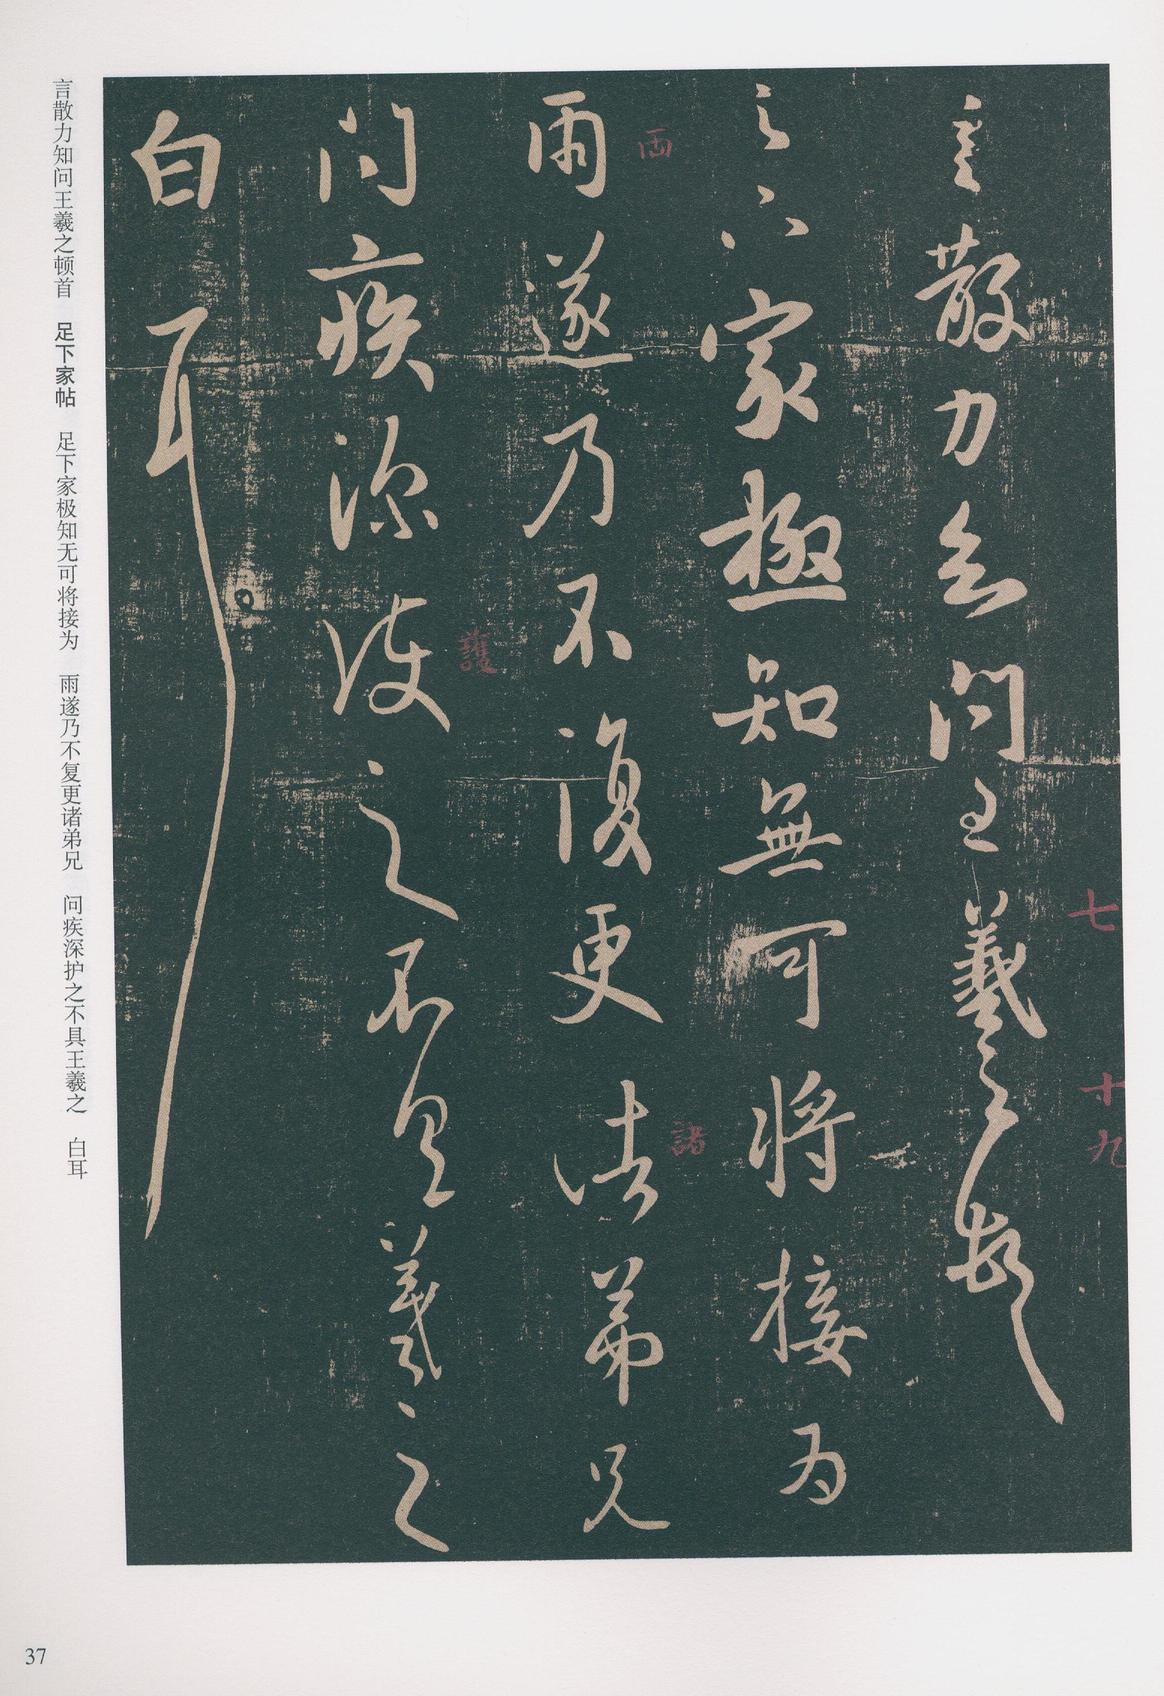 言散力知问王羲之頓首
足下家極知無可將接为
雨遂乃不復更诸弟兄
问疾深护之不具羲之
白耳
雨
護
諸
七
十九
言散力知问王羲之顿首 足下家帖 足下家极知无可将接为 雨遂乃不复更诸弟兄 问疾深护之不具王羲之 白耳
37